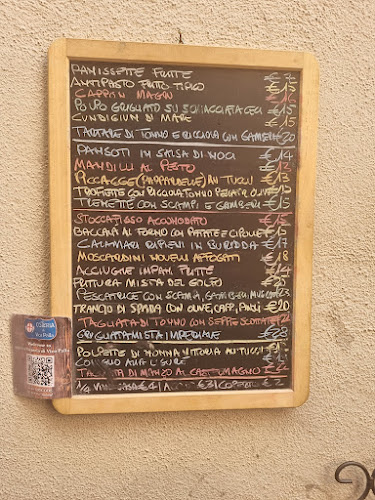 PANISSETTE FRITTE €
ANTIPASTO FRITTO TIPICO €15
CAPPON MAGRO €16
POLPO GRIGLIATO SU SCHIACCIATA CECI €15
CUNDIGIUN DI MARE €15
TARTARE DI TONNO E RICCIOLA CON GAMBERI €20
PANSOTI IN SALSA DI NOCI €14
MANDILLI AL PESTO €12
PICCAGGE (PAPPARDELLE) AU TUCCU €13
TROFIETTE CON RICCIOLA TONNO PESTATA OLIVE €15
TRENETTE CON SCAMPI E GAMBERI €15
STOCCAFISSO ACCOMODATO €15
BACCALA AL FORNO CON PATATE E CIPOLLE €15
CALAMARI RIPIENI IN BURIDDA €17
MOSCARDINI NOVELLI AFFOGATI €18
ACCIUGHE IMPAN. FRITTE €14
FRITTURA MISTA DEL GOLFO €20
PESCATRICE CON SCAMPI, GAMBERI, MUSCOLI €23
TRANCIO DI SPADA CON OLIVE, CAPP, PINOLI €20
TAGLIATA DI TONNO CON
GRIGLIATA MISTA IMPERIALE €28
POLPETTE DI NONNA VITTORIA AU TUCCU €
CONIGLIO ALLA LIGURE €
TAGLIATA DI MANZO AL CASTELMAGNO €22
1/4 VINO CASA €4 / €3 / COPERTO €2
OSTERIA
di
Vico Palla